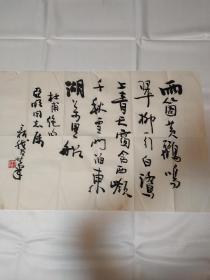 兩箇黃鸝鳴
翠柳一行白鷺
上青天窗含西嶺
千秋雪門泊東
湖萬里船
杜甫絕句
亞明同志屬